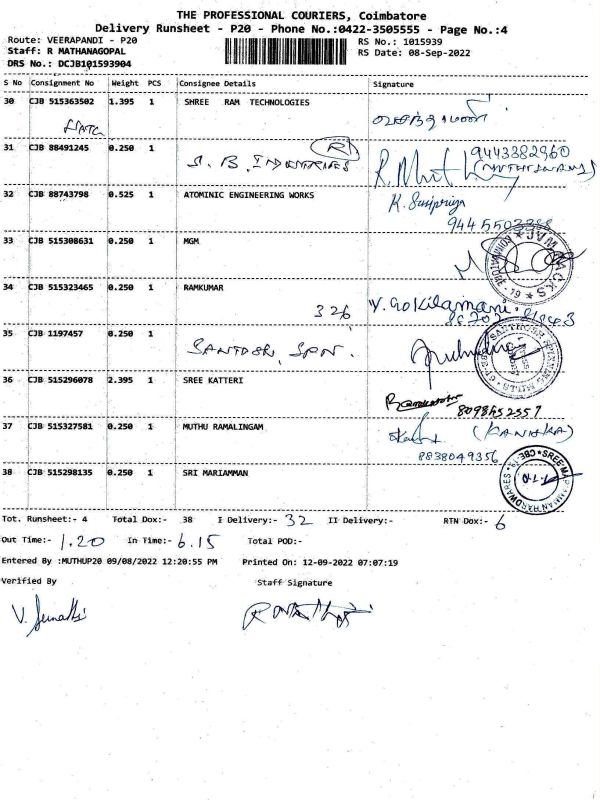 THE PROFESSIONAL COURIERS, Coimbatore
Delivery Runsheet - P20 - Phone No.:0422-3505555 - Page No.:4
Route: VEERAPANDI - P20
RS No.: 1015939
Staff: R MATHANAGOPAL
RS Date: 08-Sep-2022
DRS No.: DCJB101593904
S No Consignment No Weight PCS Consignee Details Signature
30 CJB 515363502 1.395 1 SHREE RAM TECHNOLOGIES
31 CJB 88491245 0.250 1
S. B. INDUSTRIES R
9443382960
32 CJB 88743798 0.525 1 ATOMINIC ENGINEERING WORKS
K. Sasipriya
33 CJB 515308631 0.250 1 MGM
34 CJB 515323465 0.250 1 RAMKUMAR
326 V. Gokilamani
35 CJB 1197457 0.250 1
SANTOSH SPN.
36 CJB 515296078 2.395 1 SREE KATTERI
37 CJB 515327581 0.250 1 MUTHU RAMALINGAM
(KANISHKA)
8838049356
38 CJB 515298135 0.250 1 SRI MARIAMMAN
Tot. Runsheet:- 4 Total Dox:- 38 I Delivery:- 32 II Delivery:- RTN Dox:- 6
Out Time:- 1.20 In Time:- 6.15 Total POD:-
Entered By :MUTHUP20 09/08/2022 12:20:55 PM Printed On: 12-09-2022 07:07:19
Verified By Staff Signature